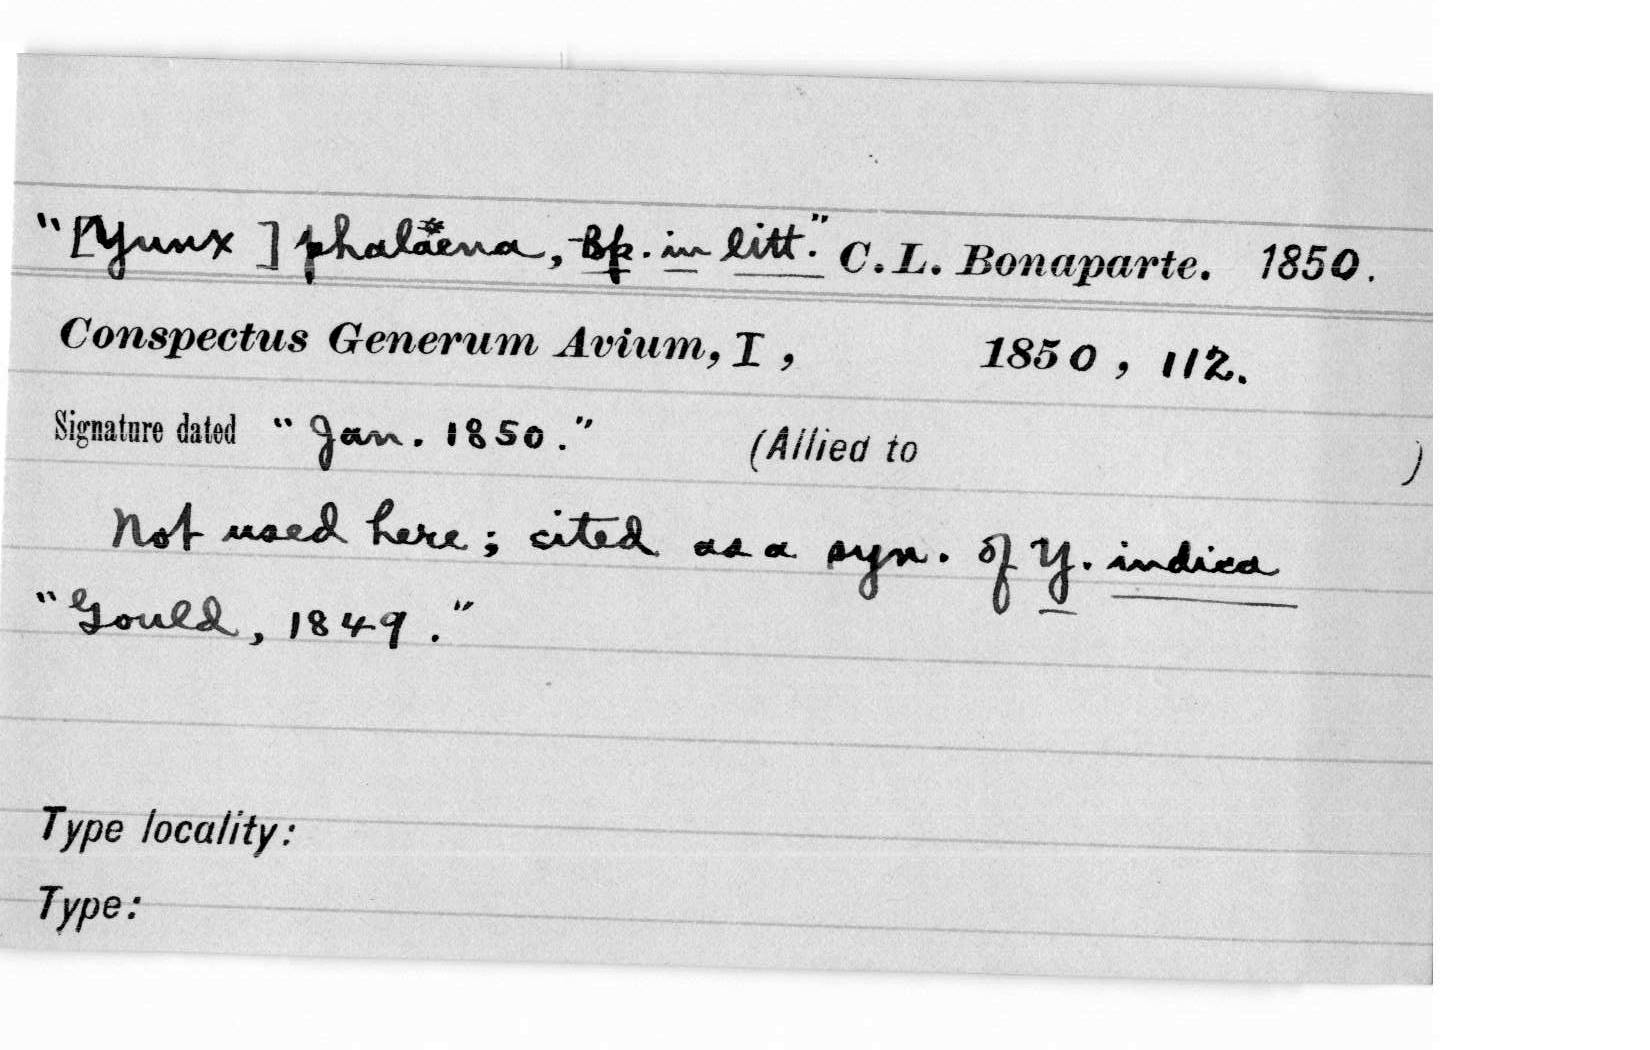 "[Yunx ] phalaena, Bp. in litt." C. L. Bonaparte. 1850.
Conspectus Generum Avium, I, 1850, 112.
Signature dated "Jan. 1850." (Allied to )
Not used here; cited as a syn. of Y. indica
"Gould, 1849."
Type locality:
Type: